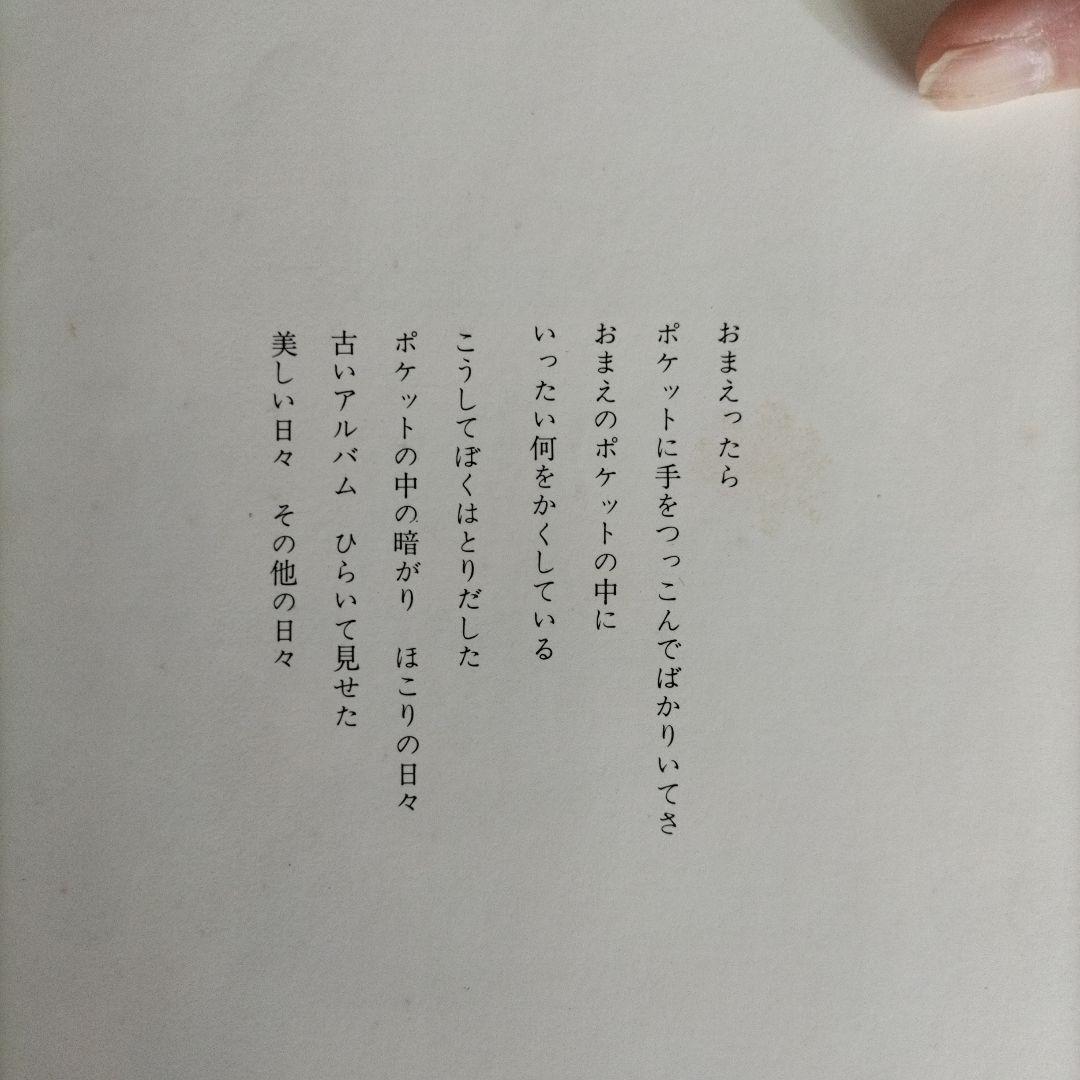 おまえったら
ポケットに手をつっこんでばかりいてさ
おまえのポケットの中に
いったい何をかくしている
こうしてぼくはとりだした
ポケットの中の暗がり　ほこりの日々
古いアルバム　ひらいて見せた
美しい日々　その他の日々